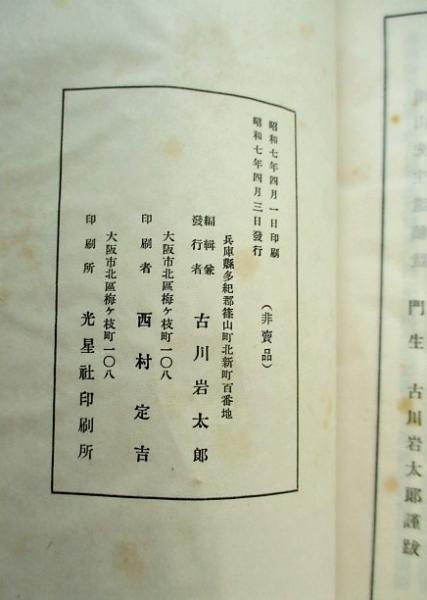 門生 古川岩太郎謹跋
昭和七年四月一日印刷
昭和七年四月三日發行
（非賣品）
兵庫縣多紀郡篠山町北新町百番地
編輯兼
發行者 古川岩太郎
大阪市北區梅ヶ枝町一〇八
印刷者 西村定吉
大阪市北區梅ヶ枝町一〇八
印刷所 光星社印刷所